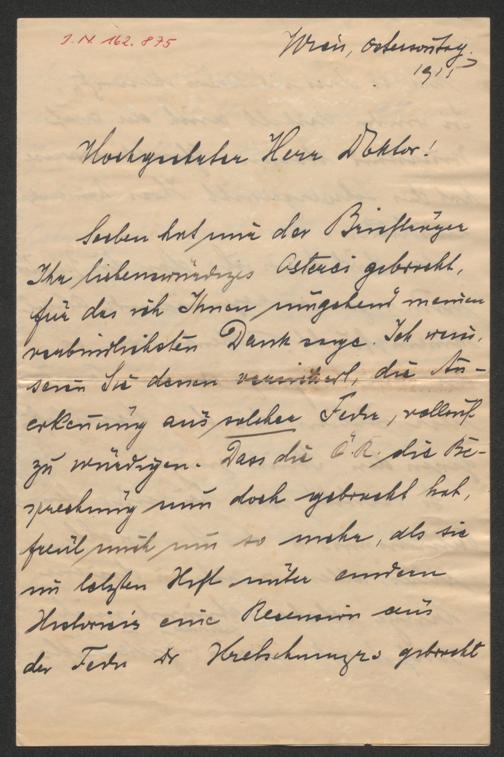 I. N. 162.875
Wien, Ostersonntag
1915
Hochgeehrter Herr Doktor!
Soeben hat mir der Briefträger
Ihr liebenswürdiges Osterei gebracht,
für das ich Ihnen umgehend meinen
verbindlichsten Dank sage. Ich weiss,
seien Sie dessen versichert, die An-
erkennung aus solcher Feder, vollauf
zu würdigen. Dass die Ö. R. die Be-
sprechung nun doch gebracht hat,
freut mich um so mehr, als sie
im letzten Heft unter andern
Historicis eine Rezension aus
der Feder Dr Kretschmayrs gebracht